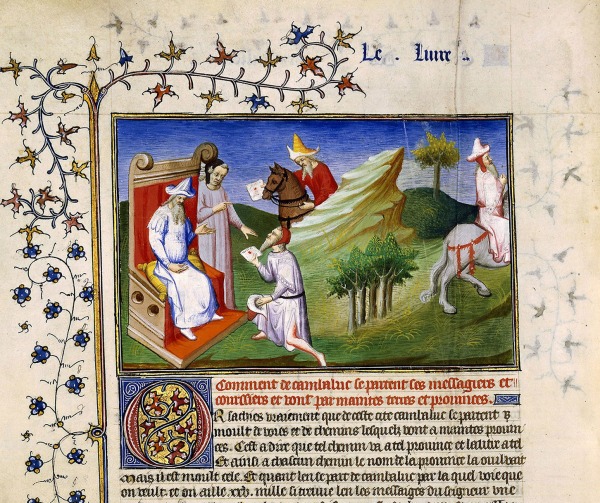 Le . liure .
Comment de cambaluc se partent ses messagiers et
courssiers et vont par maintes terres et prouinces.
Or sachies vraiement que de ceste cite cambaluc se partent
moult de voies et de chemins lesquels vont a maintes prouin
ces. Cest a dire que tel chemin va a tel prouince et lautre a tel
Et ainsi a chascun chemin le nom de la prouince la ou il vait
Mais il est moult cele. Et quant len se part de cambaluc par la quel voie que
on veult et on aille xxv. mille si treuue len les messaiges du seigneur vne